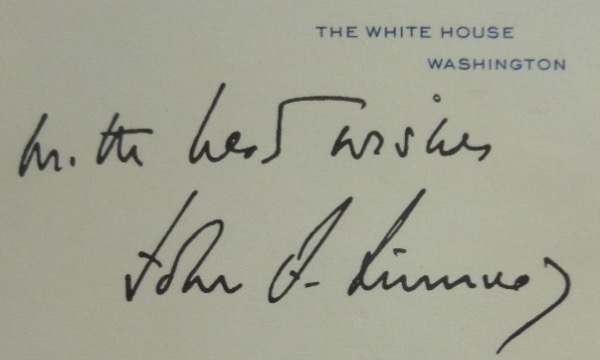 THE WHITE HOUSE
WASHINGTON
With best wishes
John F. Kennedy